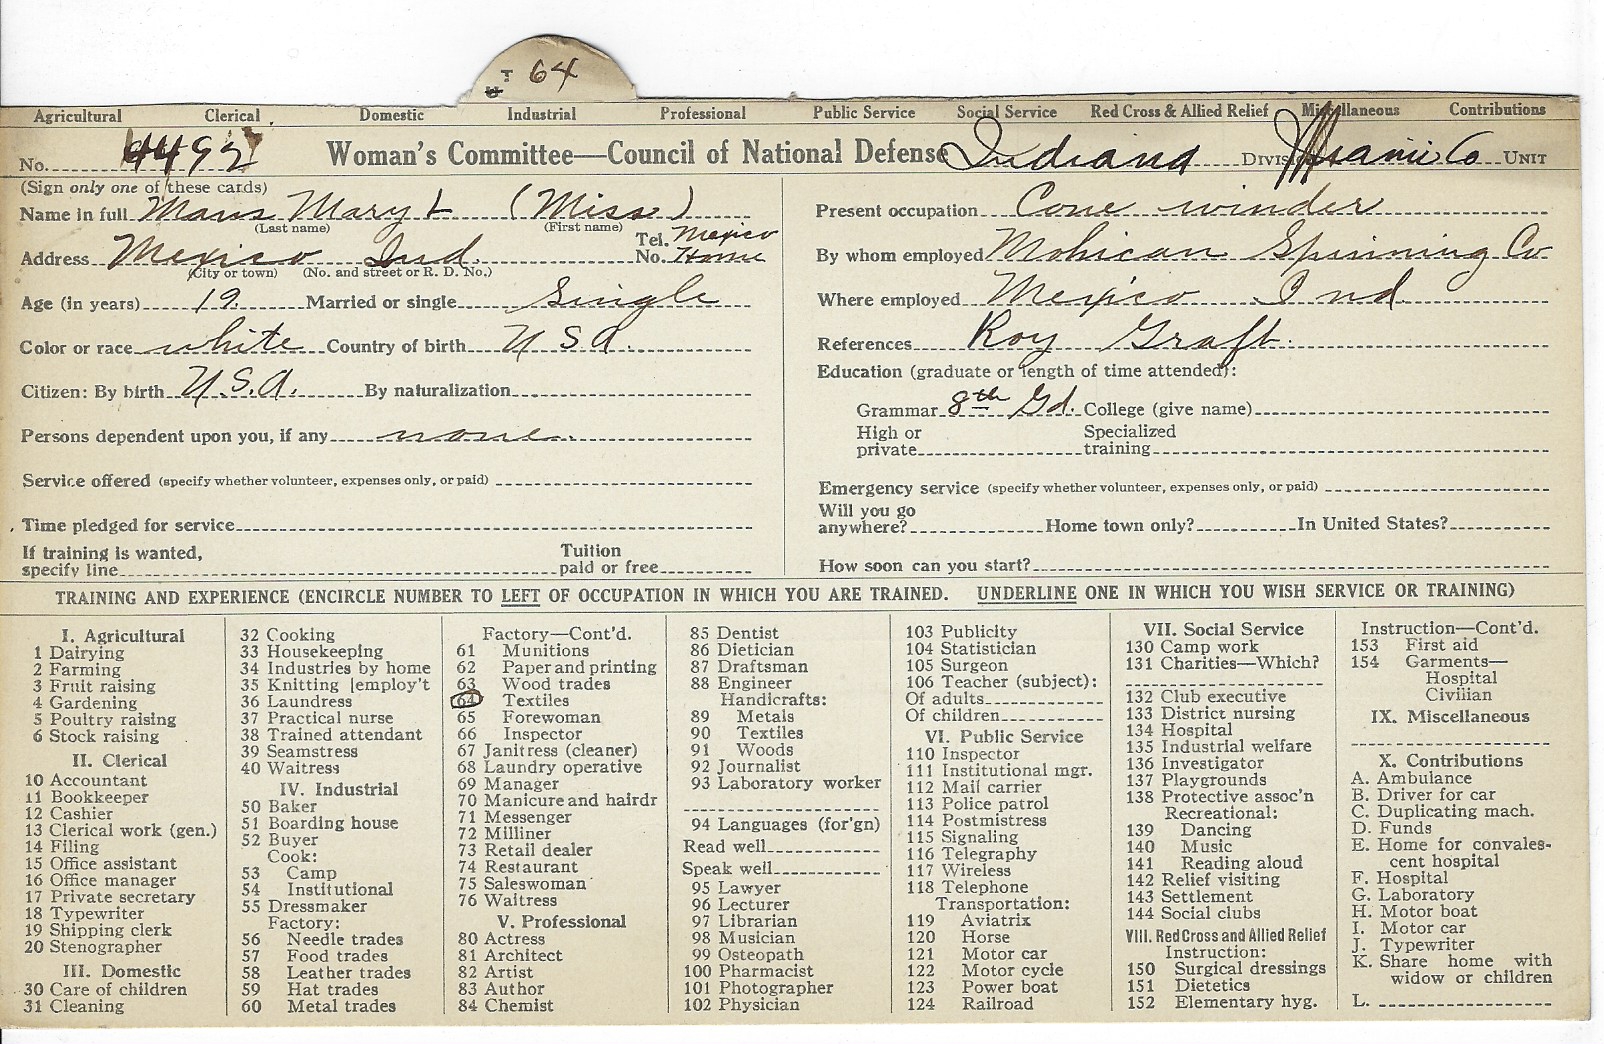 T 64
Agricultural Clerical Domestic Industrial Professional Public Service Social Service Red Cross & Allied Relief Miscellaneous Contributions
No. 4492 Woman's Committee—Council of National Defense Indiana Division Miami Co Unit
(Sign only one of these cards)
Name in full Maus Mary L (Miss)
(Last name) (First name)
Address Mexico Ind. Tel. No. Mexico Home
(City or town) (No. and street or R. D. No.)
Age (in years) 19. Married or single Single
Color or race white Country of birth U S A.
Citizen: By birth U.S.A. By naturalization
Persons dependent upon you, if any none
Service offered (specify whether volunteer, expenses only, or paid)
Time pledged for service
If training is wanted, specify line Tuition paid or free
Present occupation Cone winder
By whom employed Mohican Spinning Co.
Where employed Mexico Ind
References Roy Graft.
Education (graduate or length of time attended):
Grammar 8th Gd. College (give name)
High or private Specialized training
Emergency service (specify whether volunteer, expenses only, or paid)
Will you go anywhere? Home town only? In United States?
How soon can you start?
TRAINING AND EXPERIENCE (ENCIRCLE NUMBER TO LEFT OF OCCUPATION IN WHICH YOU ARE TRAINED. UNDERLINE ONE IN WHICH YOU WISH SERVICE OR TRAINING)
I. Agricultural
1 Dairying
2 Farming
3 Fruit raising
4 Gardening
5 Poultry raising
6 Stock raising
II. Clerical
10 Accountant
11 Bookkeeper
12 Cashier
13 Clerical work (gen.)
14 Filing
15 Office assistant
16 Office manager
17 Private secretary
18 Typewriter
19 Shipping clerk
20 Stenographer
III. Domestic
30 Care of children
31 Cleaning
32 Cooking
33 Housekeeping
34 Industries by home
35 Knitting [employ't
36 Laundress
37 Practical nurse
38 Trained attendant
39 Seamstress
40 Waitress
IV. Industrial
50 Baker
51 Boarding house
52 Buyer
Cook:
53 Camp
54 Institutional
55 Dressmaker
Factory:
56 Needle trades
57 Food trades
58 Leather trades
59 Hat trades
60 Metal trades
Factory—Cont'd.
61 Munitions
62 Paper and printing
63 Wood trades
64 Textiles
65 Forewoman
66 Inspector
67 Janitress (cleaner)
68 Laundry operative
69 Manager
70 Manicure and hairdr
71 Messenger
72 Milliner
73 Retail dealer
74 Restaurant
75 Saleswoman
76 Waitress
V. Professional
80 Actress
81 Architect
82 Artist
83 Author
84 Chemist
85 Dentist
86 Dietician
87 Draftsman
88 Engineer
Handicrafts:
89 Metals
90 Textiles
91 Woods
92 Journalist
93 Laboratory worker
94 Languages (for'gn)
Read well
Speak well
95 Lawyer
96 Lecturer
97 Librarian
98 Musician
99 Osteopath
100 Pharmacist
101 Photographer
102 Physician
103 Publicity
104 Statistician
105 Surgeon
106 Teacher (subject):
Of adults
Of children
VI. Public Service
110 Inspector
111 Institutional mgr.
112 Mail carrier
113 Police patrol
114 Postmistress
115 Signaling
116 Telegraphy
117 Wireless
118 Telephone
Transportation:
119 Aviatrix
120 Horse
121 Motor car
122 Motor cycle
123 Power boat
124 Railroad
VII. Social Service
130 Camp work
131 Charities—Which?
132 Club executive
133 District nursing
134 Hospital
135 Industrial welfare
136 Investigator
137 Playgrounds
138 Protective assoc'n
Recreational:
139 Dancing
140 Music
141 Reading aloud
142 Relief visiting
143 Settlement
144 Social clubs
VIII. Red Cross and Allied Relief
Instruction:
150 Surgical dressings
151 Dietetics
152 Elementary hyg.
Instruction—Cont'd.
153 First aid
154 Garments—
Hospital
Civilian
IX. Miscellaneous
X. Contributions
A. Ambulance
B. Driver for car
C. Duplicating mach.
D. Funds
E. Home for convales-
cent hospital
F. Hospital
G. Laboratory
H. Motor boat
I. Motor car
J. Typewriter
K. Share home with
widow or children
L.